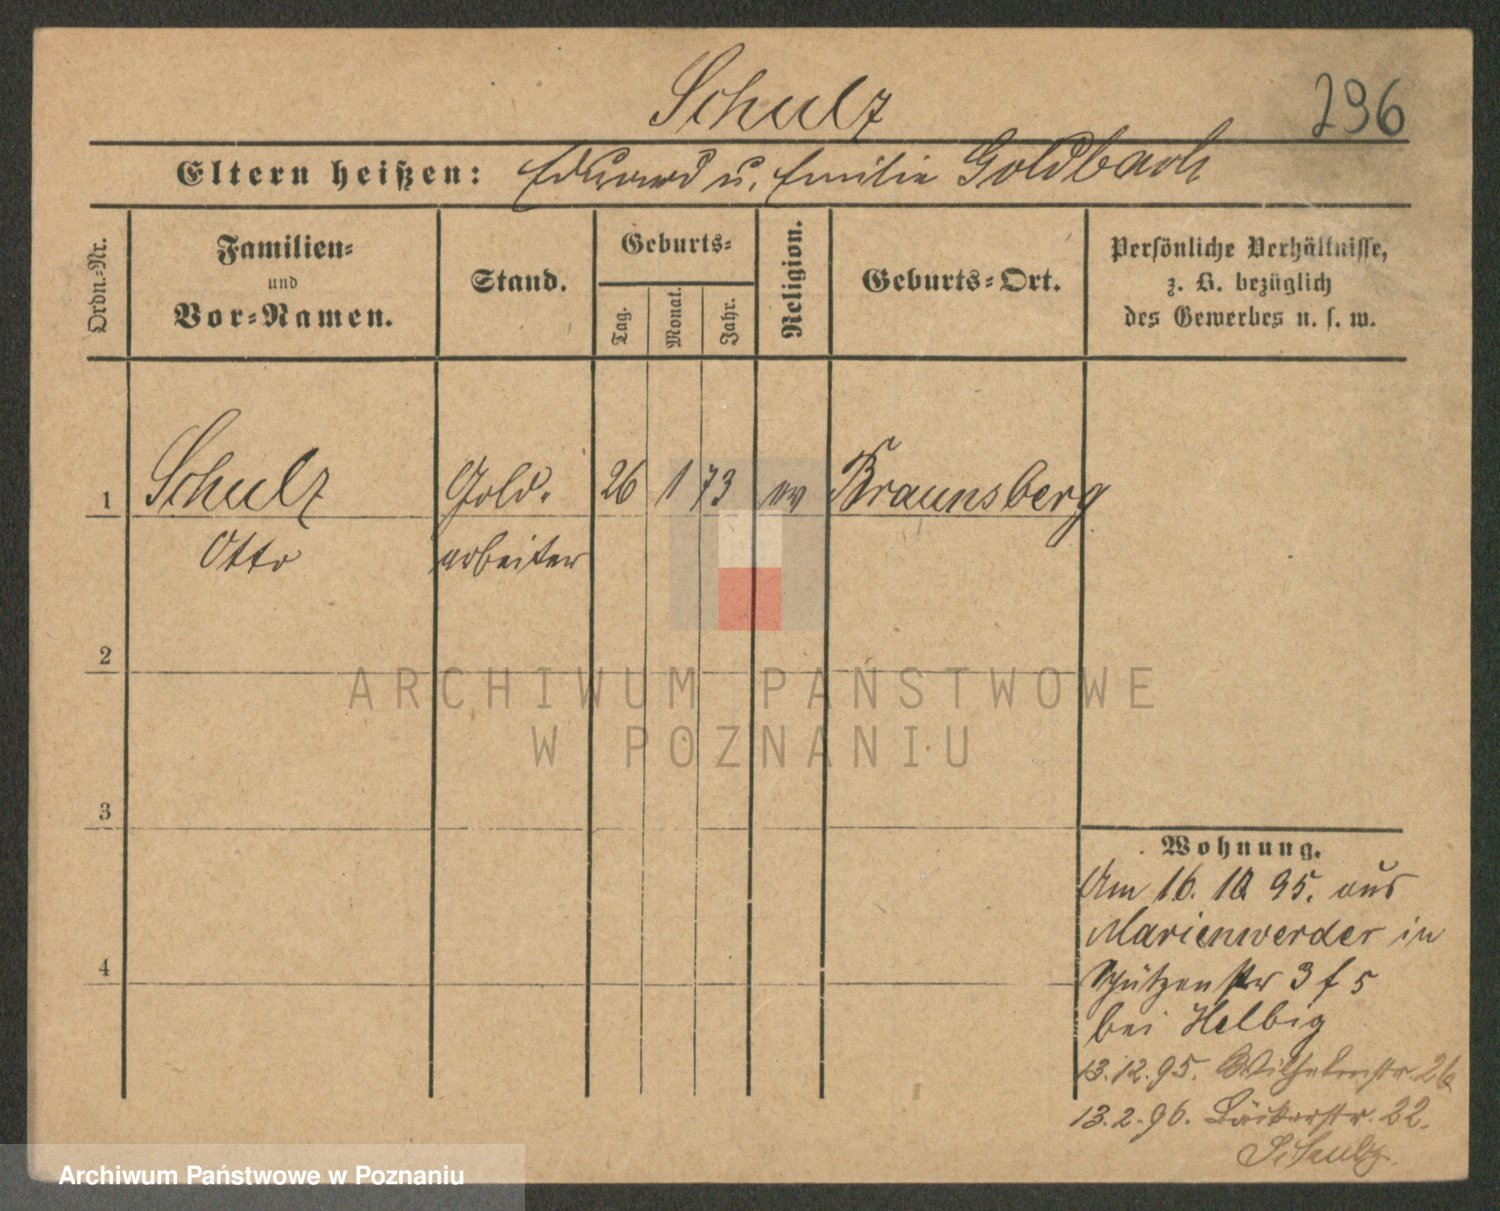 Schulz
296
Eltern heißen: Eduard u. Emilie Goldbach
Ordn.-Nr.
Familien-
und
Vor-Namen.
Stand.
Geburts-
Tag.
Monat.
Jahr.
Religion.
Geburts-Ort.
Persönliche Verhältnisse,
z. B. bezüglich
des Gewerbes u. s. w.
1 Schulz Gold- 26 1 73 ev Braunsberg
Otto arbeiter
2
3
4
Wohnung.
Am 16. 10 95. aus
Marienwerder in
Schützenstr 3 f 5
bei Helbig
13.12.95. Wilhelmstr. 26
13.2.96. Bäckerstr. 22.
Schulz.
ARCHIWUM PAŃSTWOWE
W POZNANIU
Archiwum Państwowe w Poznaniu